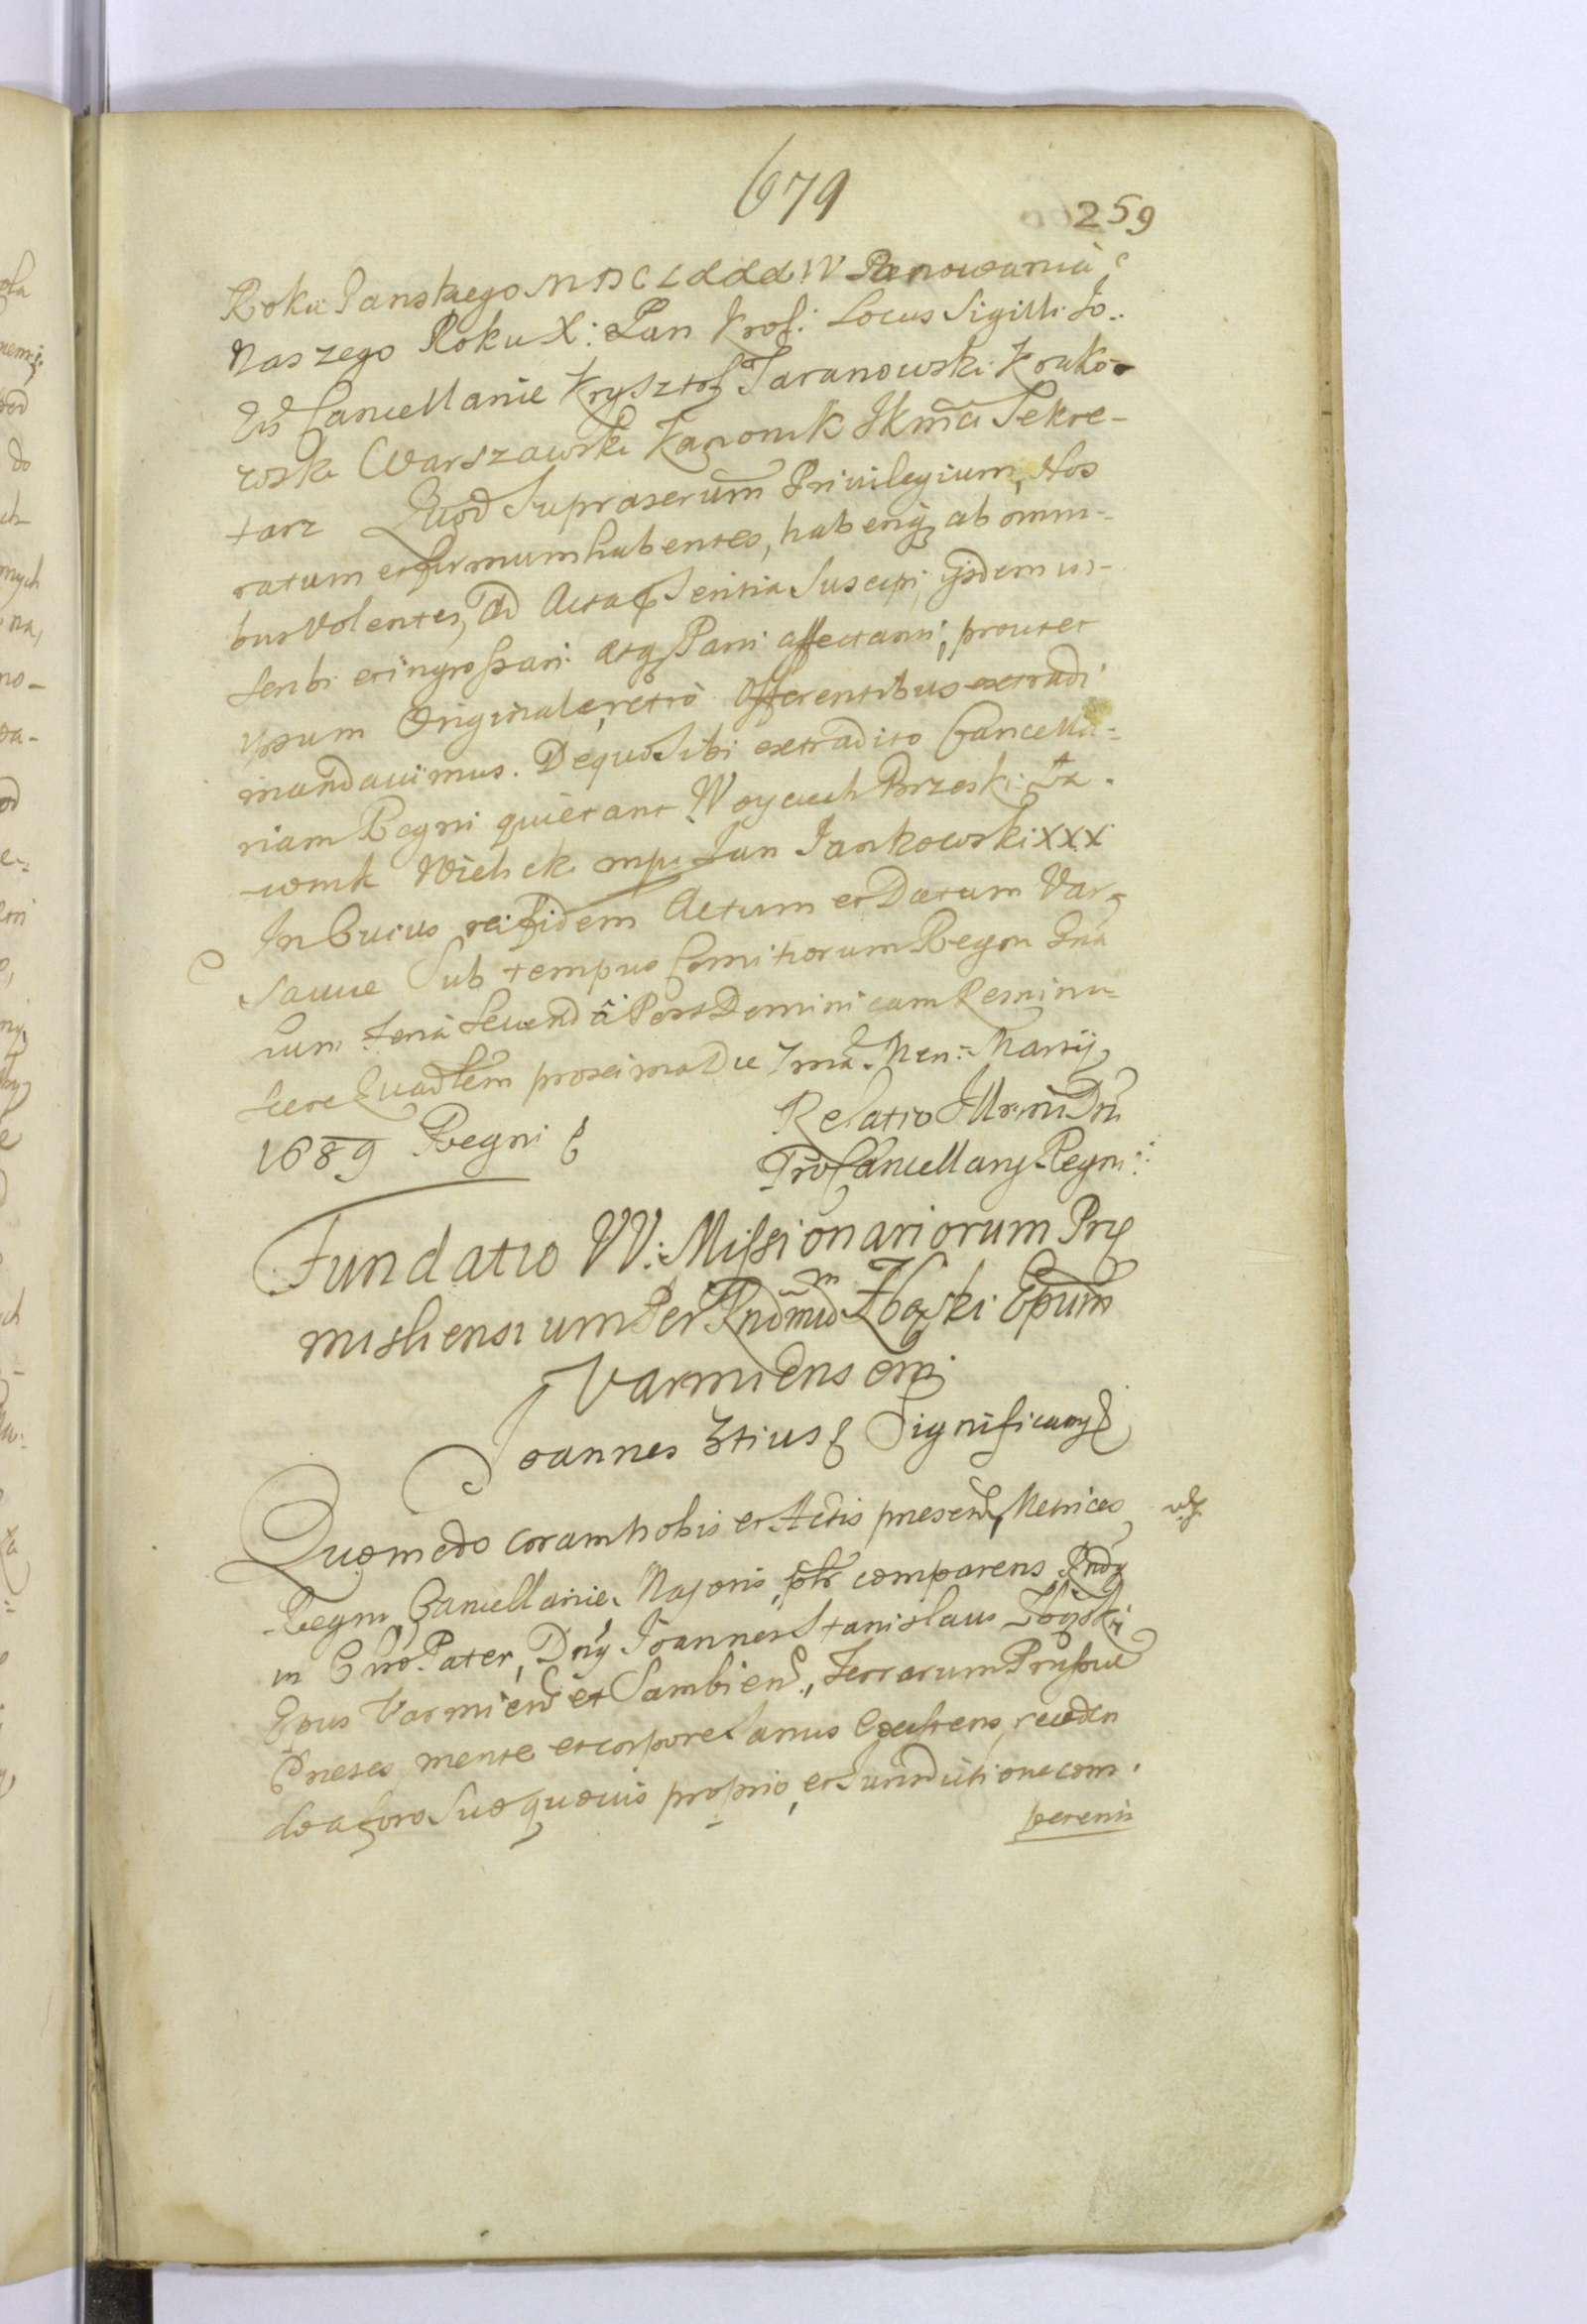 679
259
Roku Panskiego MDCLXXXIV Panowania
Naszego Roku X: Jan Krol: Locus Sigilli Jo..
Eis Cancellariae Krysztof Taranowski Krako-
wski Warszawski Kanonik JKmci Sekre-
tarz Quod Supraserum Privilegium, Nos
ratum et firmum habentes, haberiq ab omni-
bus Volentes, ad Acta Suscipi, ijsdem in-
scribi et ingrossari atq Parti affectanti, prout et
ipsum Originale, retro Offerentibus extradi
mandavimus. De quo Sibi extradito Cancella-
riam Regni quietant Woyciech Brzeski
-wnik Wielick mp Jan Jankowski XXX
In Cuius rei fidem Actum et Datum Var-
saviae Sub tempus Comitiorum Regni Gna
lium feria Secunda Post Dominicam Remini-
scere Quadlem proxima Die 7ma Men: Martij
1689 Regni
Relatio Illmi Dni
ProCancellarij Regni:
Fundatio VV: Missionariorum Prae
misliensium Per Rndmum Zbąski Epum
Varmiensem
Joannes 3tius Significamus
Quomodo coram nobis et Actis praesentibus Metrices
Regni Cancellariae Majoris, plr comparens Rndus
in Chro Pater, Dnus Joannes Stanislaus Zbąski
Epus Varmien et Sambien, Terrarum Prussiae
Praeses mente et corpore sanus Existens, receden
do a foro Suo quovis proprio, et Jurisdictione com.
petenti